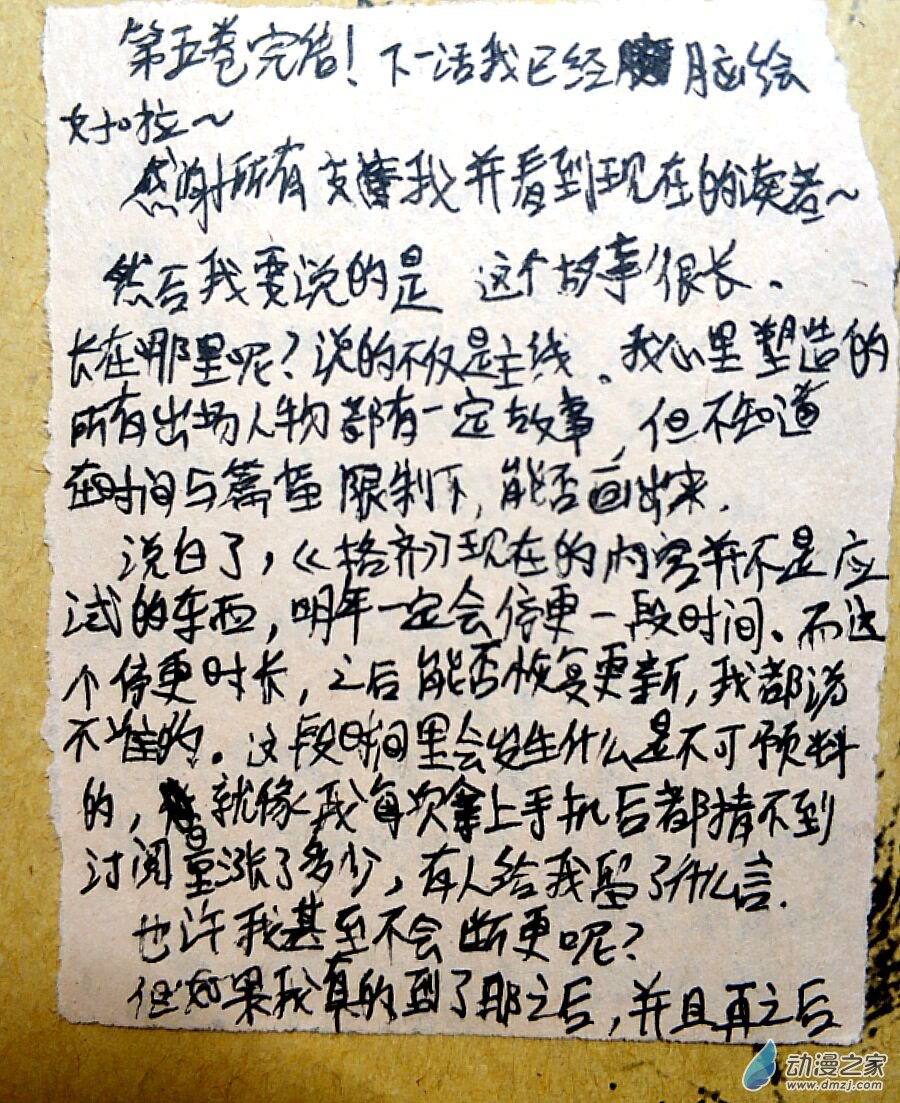 第五卷完结！下一话我已经脑绘
好啦～
感谢所有支持我并看到现在的读者～
然后我要说的是 这个故事很长。
长在哪里呢？说的不仅是主线。我心里塑造的
所有出场人物都有一定故事，但不知道
在时间与篇幅限制下，能否画出来.
说白了，《格斋》现在的内容并不是应
试的东西，明年一定会停更一段时间。而这
个停更时长，之后能否恢复更新，我都说
不准的。这段时间里会发生什么是不可预料
的，就像我每次拿上手机后都猜不到
订阅量涨了多少，有人给我留了什么言.
也许我甚至不会断更呢？
但如果我真的到了那之后，并且再之后
动漫之家
www.dmzj.com